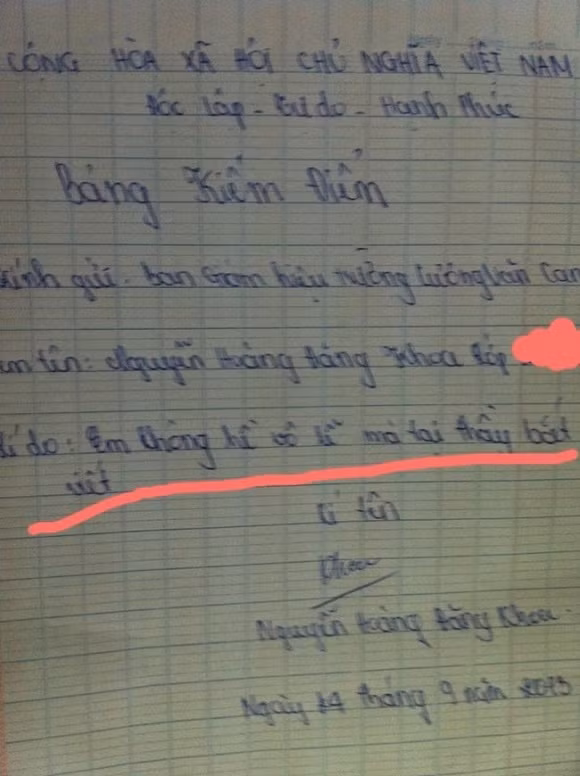 CỘNG HÒA XÃ HỘI CHỦ NGHĨA VIỆT NAM
Độc lập - Tự do - Hạnh Phúc
Bảng Kiểm Điểm
kính gửi. ban Giám hiệu trường Lương Văn Can
em tên: Nguyễn Hoàng Đăng Khoa lớp
Lí do: Em không hề vô lễ mà tại thầy bắt
viết
kí tên
Khoa
Nguyễn Hoàng Đăng Khoa.
Ngày 24 tháng 9 năm 2013